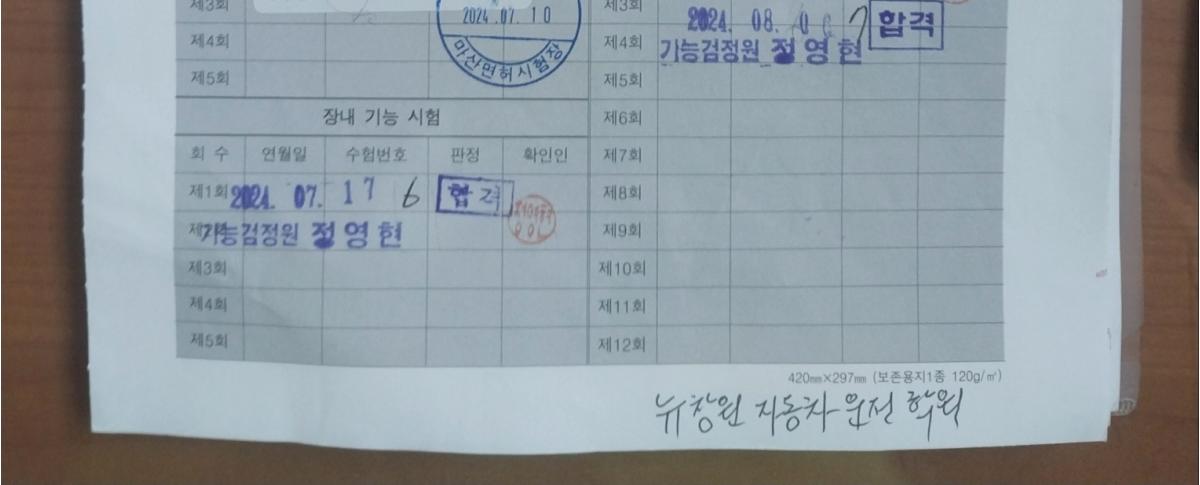 제3회
2024.07.10
제4회
마산면허시험장
제5회
장내 기능 시험
회 수 연월일 수험번호 판정 확인인
제1회 2024. 07. 17 6 합격
제2회 기능검정원 정영현
제3회
제4회
제5회
제3회
2024. 08. 7 합격
제4회 기능검정원 정영현
제5회
제6회
제7회
제8회
제9회
제10회
제11회
제12회
420㎜×297㎜ (보존용지1종 120g/㎡)
뉴창원 자동차운전 학원